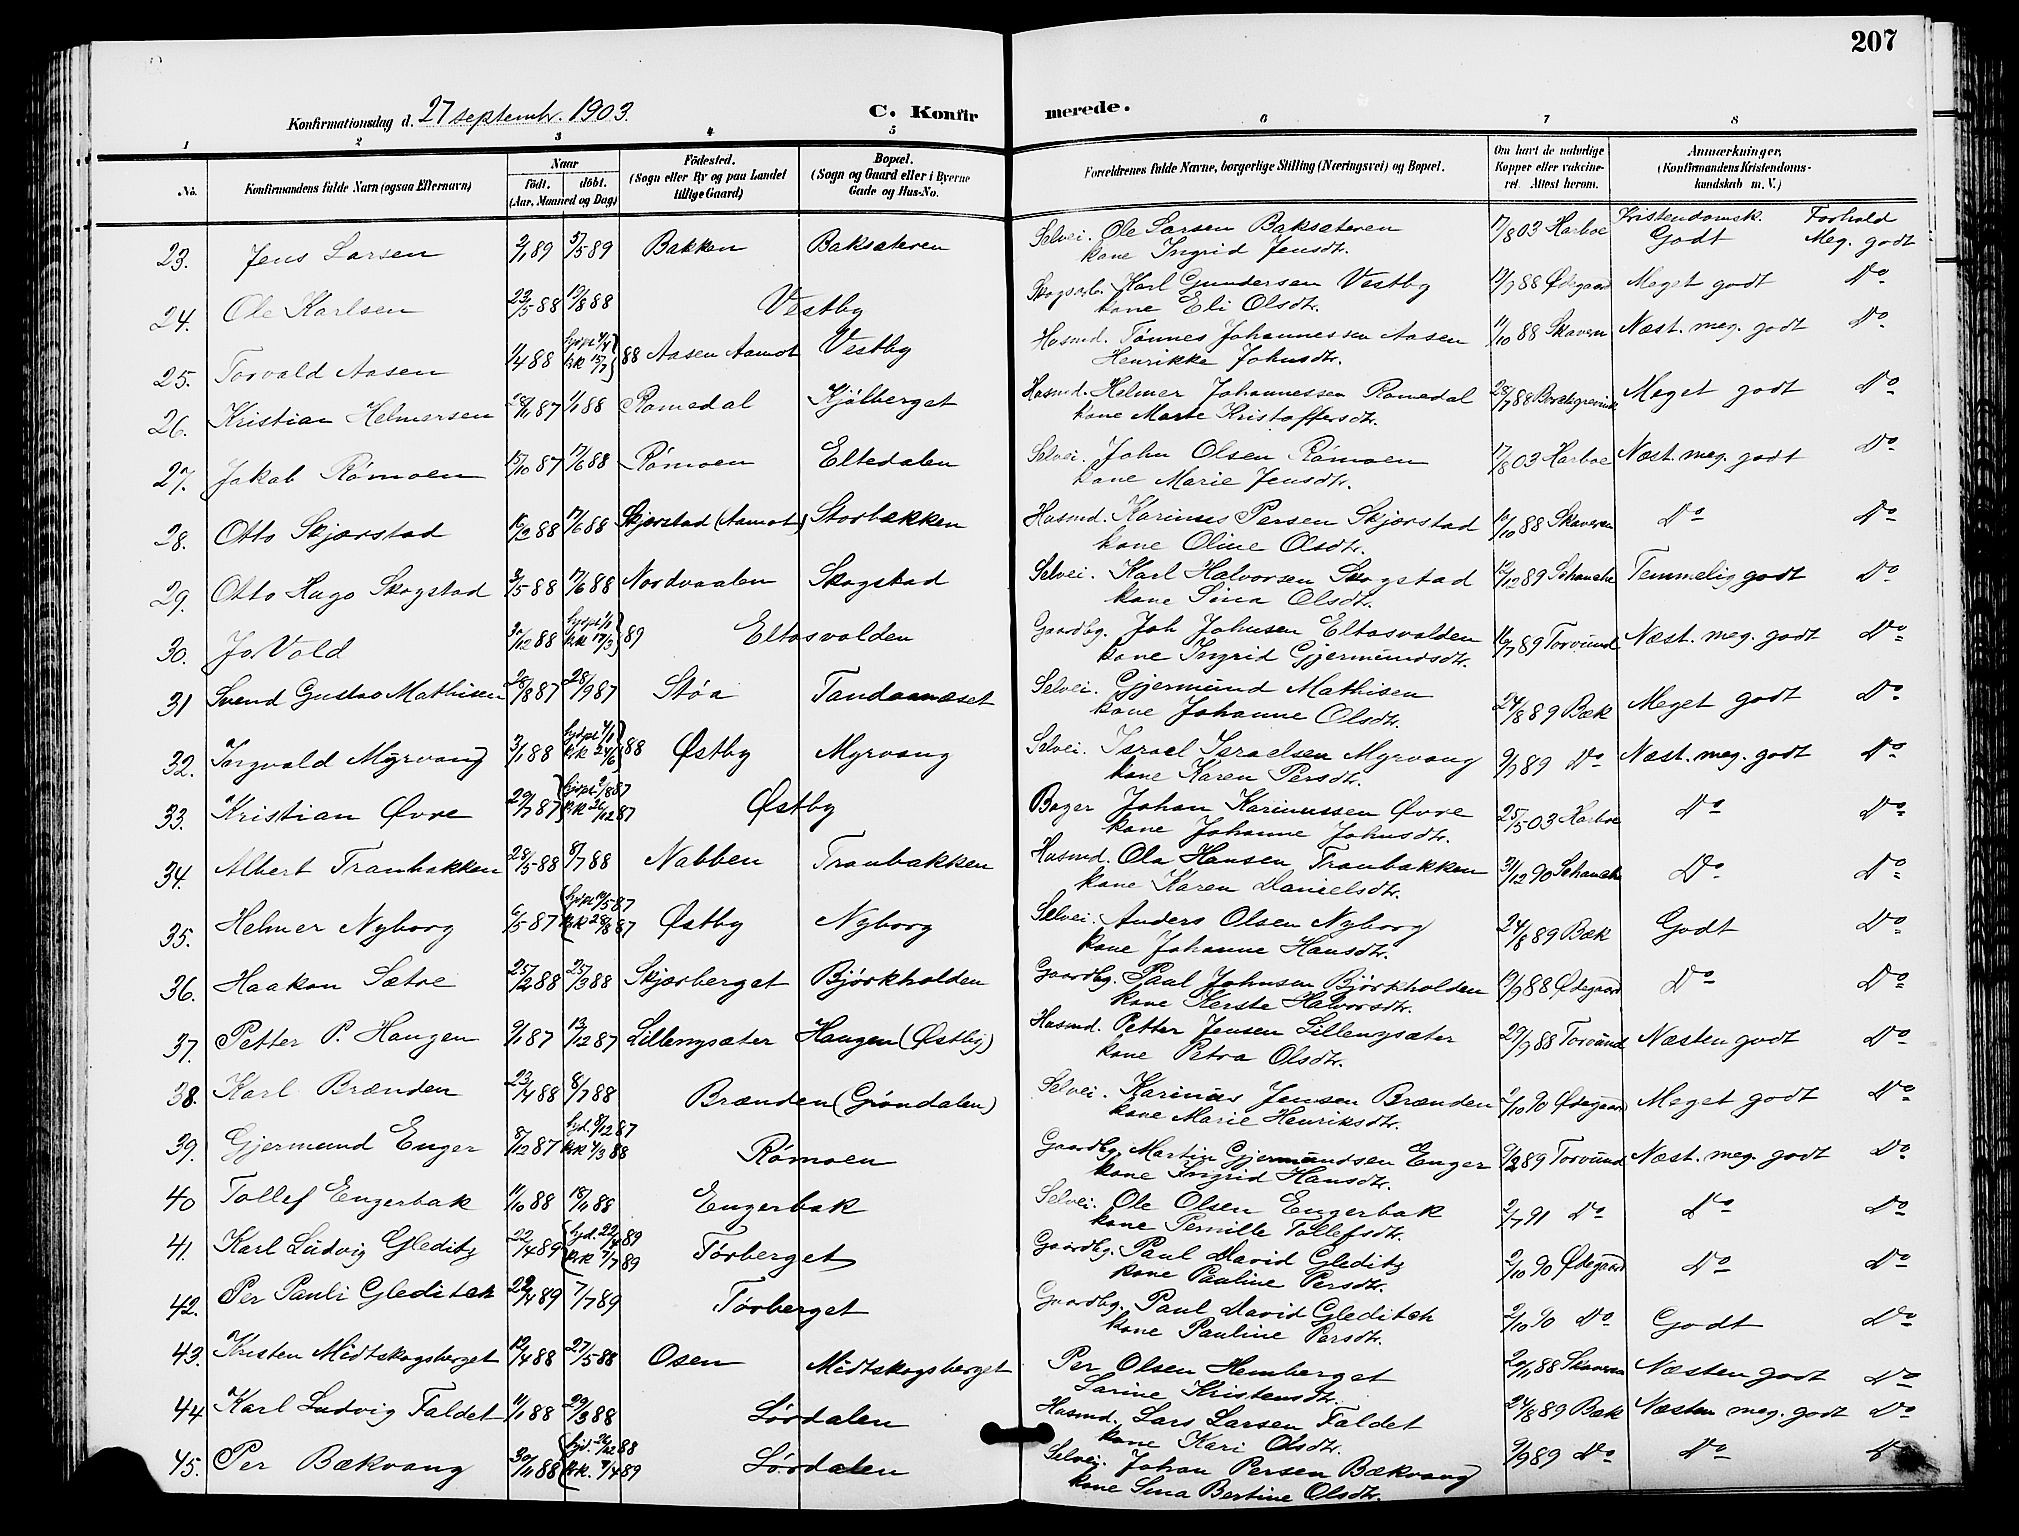 207
Konfirmationsdag d. 27 septembr. 1903.
C. Konfirmerede.
1 2 3 4 5 6 7 8
No. Konfirmandens fulde Navn (ogsaa Efternavn) Naar født, døbt. (Aar, Maaned og Dag) Fødested. (Sogn eller By og paa Landet tillige Gaard) Bopæl. (Sogn og Gaard eller i Byerne Gade og Hus-No. Forældrenes fulde Navne, borgerlige Stilling (Næringsvei) og Bopæl. Om havt de naturlige Kopper eller vakcineret. Attest herom. Anmærkninger, (Konfirmandens Kristendomskundskab m. V.)
Kristendomsk. Forhold
23. Jens Larsen 89 89 Bakken Baksæteren Selvei. Ole Larsen Baksæteren 17/8 03 Harboe Godt Meg. godt
kone Ingrid Jensdtr.
24. Ole Karlsen 23/5 88 88 Vestby Skogsarb. Karl Gundersen Vestby 88 Ødegaard Meget godt Do
kone Eli Olsdtr.
25. Torvald Aasen 1/4 88 88 Aasen Aamot Vestby Husmd. Tønnes Johannessen Aasen 11/10 88 Skaven Næst. meg. godt Do
Henrikke Johnsdtr.
26. Kristian Helmersen 87 88 Romedal Kjølberget Husmd. Helmer Johannessen Romedal 88 Meget godt Do
kone Marte Kristoffersdtr.
27. Jakob Rømoen 15/10 87 17/6 88 Rømoen Eltedalen Selvei. John Olsen Rømoen 17/8 03 Harboe Næst. meg. godt Do
kone Marie Jensdtr.
28. Otto Skjærstad 88 17/6 88 Skjærstad (Aamot) Storbækken Husmd. Karinus Persen Skjærstad 88 Skaven Do Do
kone Oline Olsdtr.
29. Otto Hugo Skogstad 3/5 88 17/6 88 Nordvaalen Skogstad Selvei. Karl Halvorsen Skogstad 12/12 89 Schanche Temmelig godt Do
kone Sina Olsdtr.
30. Jo Vold 88 89 Eltasvolden Gaardbg. Joh Johnsen Eltasvolden 89 Torvund Næst. meg. godt Do
kone Ingrid Gjermundsdtr.
31 Svend Gustav Mathisen 28/8 87 28/9 87 Støa Tandaanæset Selvei. Gjermund Mathisen 24/8 89 Bæk Meget godt Do
kone Johanne Olsdtr.
32. Torgvald Myrvang 3/1 88 88 Østby Myrvang Selvei. Israel Israelsen Myrvang 89 Do Næst. meg. godt Do
kone Karen Persdtr.
33. Kristian Øvre 87 87 Østby Bager Johan Karinussen Øvre 25/5 03 Harboe Do Do
kone Johanne Johnsdtr.
34. Albert Tranbakken 28/5 88 8/7 88 Nabben Tranbakken Husmd. Ola Hansen Tranbakken 31/12 90 Schanche Do Do
kone Karen Danielsdtr.
35. Helmer Nyborg 6/5 87 87 Østby Nyborg Selvei. Anders Olsen Nyborg 24/8 89 Bæk Godt Do
kone Johanne Hansdtr.
36. Haakon Sætre 25/2 88 25/3 88 Skjærberget Bjørkholden Gaardbg. Paul Johnsen Bjørkholden 88 Ødegaard Do Do
kone Kerste Halvorsdtr.
37. Petter P. Haugen 87 13/12 87 Lillengsæter Haugen (Østby) Husmd. Petter Jensen Lillengsæter 88 Torvund Næsten godt Do
kone Petra Olsdtr.
38. Karl Brænden 23/4 88 8/7 88 Brænden (Grøndalen) Selvei. Karinus Jensen Brænden 90 Ødegaard Meget godt Do
kone Marie Henriksdtr.
39. Gjermund Enger 8/12 87 hjd. 87 Rømoen Gaardbg. Martin Gjermundsen Enger 89 Torvund Næst. meg. godt Do
kk 4/3 88 kone Ingrid Hansdtr.
40 Tollef Engerbak 11/10 88 18/11 88 Engerbak Selvei. Ole Olsen Engerbak 2/7 91 Do Do Do
kone Pernille Tollefsdtr.
41. Karl Ludvig Gleditz 22/4 89 hjd. 22/4 89 Tørberget Gaardbg. Paul David Gleditz 2/10 90 Ødegaard Do Do
kk 7/7 89 kone Pauline Persdtr.
42. Per Pauli Gleditch 22/4 89 7/7 89 Tørberget Gaardbg. Paul David Gleditch 2/10 90 Do Godt Do
kone Pauline Persdtr.
43. Kristen Midtskogsberget 88 27/5 88 Osen Midtskogsberget Per Olsen Hemberget 88 Skaven Næsten godt Do
Sarine Kristensdtr.
44 Karl Ludvig Faldet 88 29/3 88 Lørdalen Husmd. Lars Larsen Faldet 24/8 89 Bæk Næsten meg. godt Do
kone Kari Olsdtr.
45. Per Bækvang 30/11 88 hjd. 26/12 88 Lørdalen Selvei. Johan Persen Bækvang 89 Do Do
kk. 89 kone Sina Bertine Olsdtr.